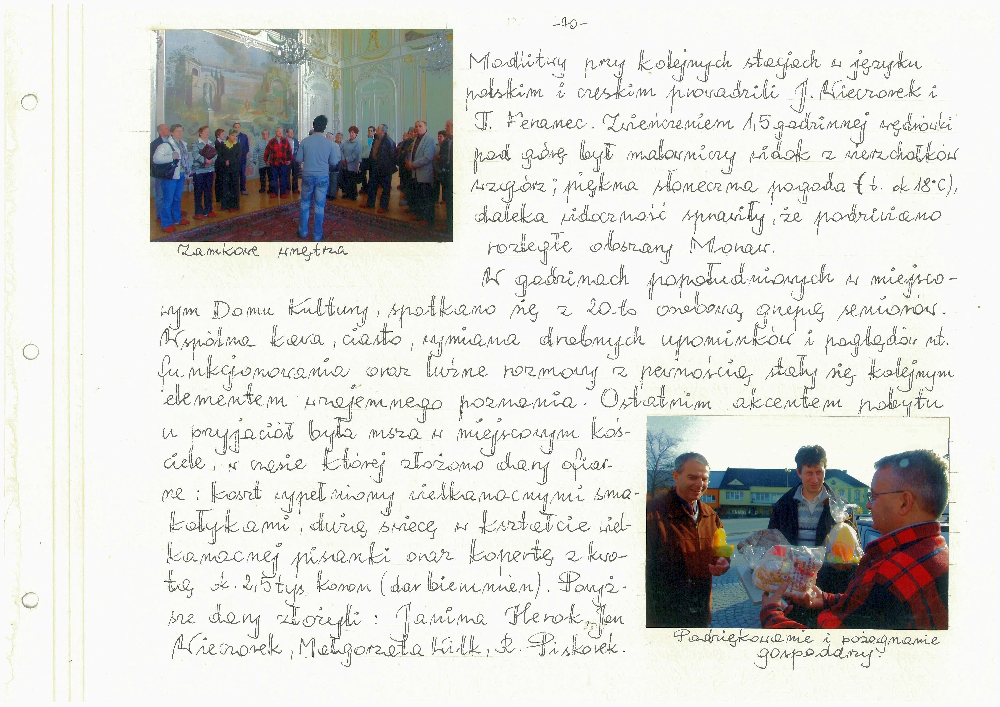 -10-
Modlitwy przy kolejnych stacjach w języku
polskim i czeskim prowadzili J. Wieczorek i
T. Fenanec. Zwieńczeniem 1,5 godzinnej wędrówki
pod górę był malowniczy widok z wierzchołków
wzgórz; piękna słoneczna pogoda (t. ok 18°C),
daleka widoczność sprawiły, że podziwiano
rozległe obszary Moraw.
Zamkowe wnętrza
W godzinach popołudniowych w miejsco-
wym Domu Kultury, spotkano się z 20-to osobową grupą seniorów.
Wspólna kawa, ciasto, wymiana drobnych upominków i poglądów nt.
funkcjonowania oraz luźne rozmowy z pewnością stały się kolejnym
elementem wzajemnego poznania. Ostatnim akcentem pobytu
u przyjaciół była msza w miejscowym koś-
ciele, w czasie której złożono dary ofiar-
ne: kosz wypełniony wielkanocnymi sma-
kołykami, dużą świecę w kształcie wiel-
kanocnej pisanki oraz kopertę z kwo-
tą ok. 2,5 tys koron (dar bierzmien). Powyż-
sze dary złożyli: Janina Herok, Jan
Wieczorek, Małgorzata Kilk, R. Piskorek.
Podziękowanie i pożegnanie
gospodarzy.